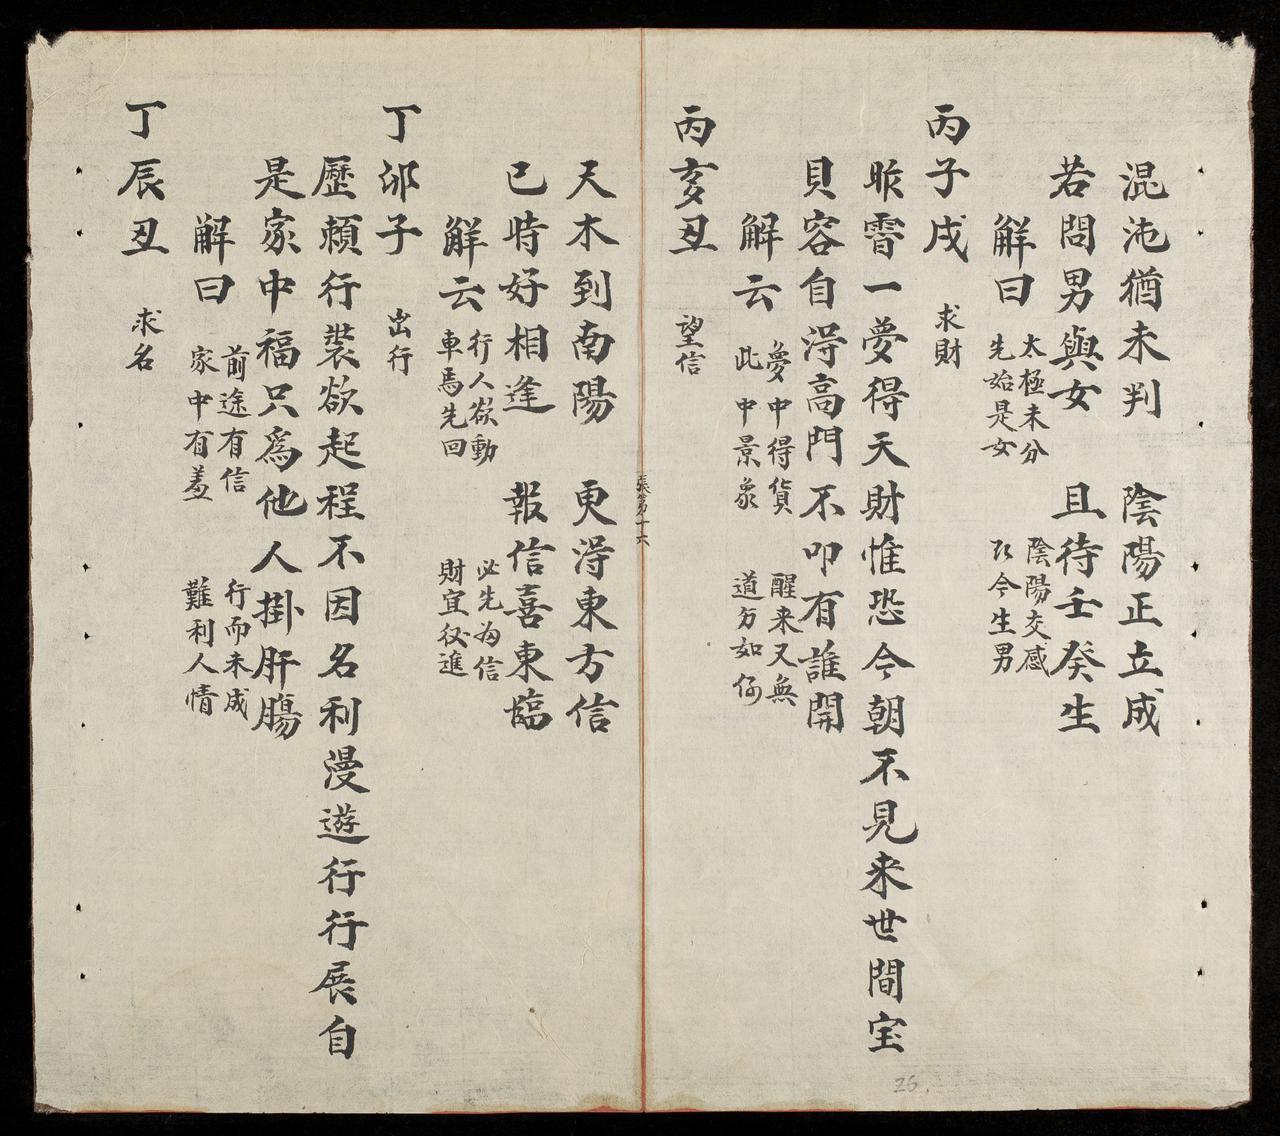 混沌猶未判　陰陽正立成
若問男與女　且待壬癸生
解曰
太極未分　陰陽交感
先始是女　次今生男
丙子戌　求財
昨霄一夢得天財惟恐今朝不見来世間宝
貝容自淂高門不叩有誰開
解云
夢中得貨　醒来又無
此中景象　道方如
丙亥丑　望信
天木到南陽　更淂東方信
已時好相逢　報信喜東臨
解云
行人欲動　必先為信
車馬先回　財宜後進
張第十六
丁卯子　出行
歷頼行裝欲起程不因名利漫遊行行展自
是家中福只為他人掛肝腸
解曰
前途有信　行而未成
家中有羞　難利人情
丁辰丑　求名
25.